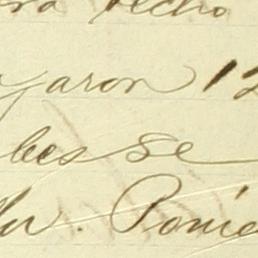 ra Pecho
yaron 12
bes se
Ponie